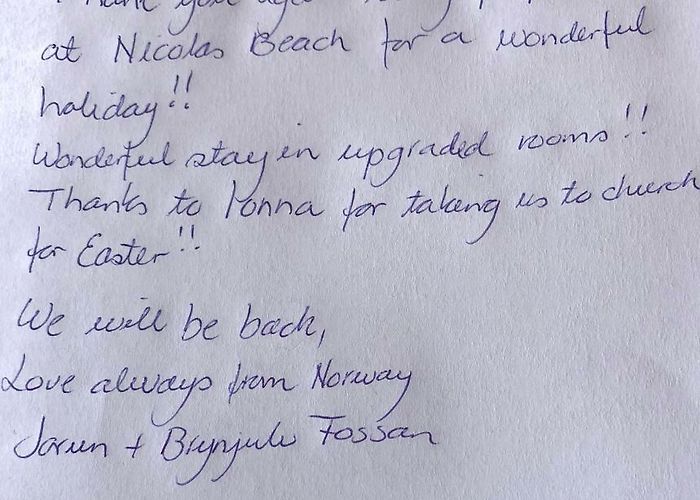 Thank you again
at Nicolas Beach for a wonderful
holiday!!
Wonderful stay in upgraded rooms!!
Thanks to Ionna for taking us to church
for Easter!!
We will be back,
Love always from Norway
Jorun + Brynjulv Fossan